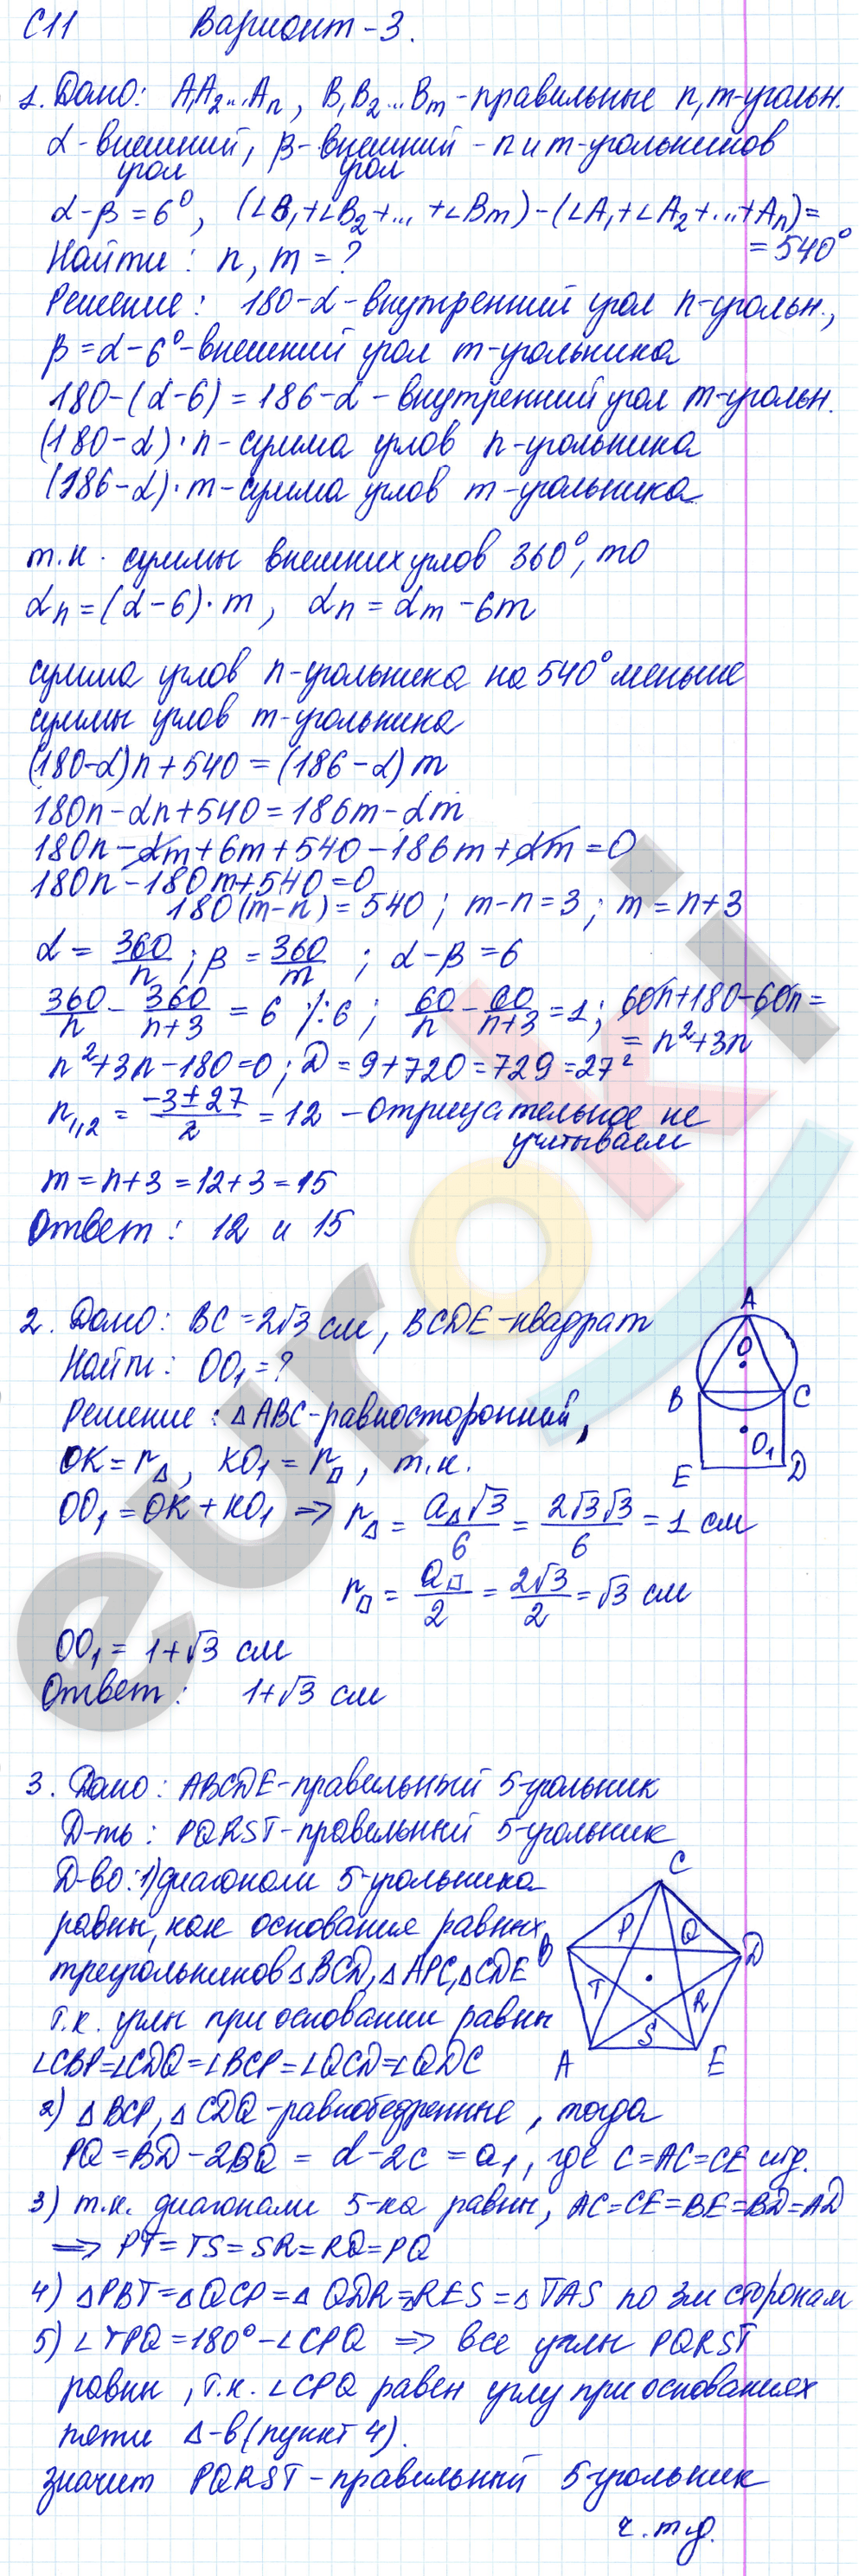 С11 Вариант-3.
1. Дано: A₁A₂...Aₙ, B₁B₂...Bₘ - правильные n, m-угольн.
α - внешний угол, β - внешний угол - n и m-угольников
α-β=6°, (∠B₁+∠B₂+...+∠Bₘ)-(∠A₁+∠A₂+...+Aₙ)=
=540°
Найти: n, m = ?
Решение: 180-α - внутренний угол n-угольн.,
β=α-6° - внешний угол m-угольника
180-(α-6)=186-α - внутренний угол m-угольн.
(180-α)·n - сумма углов n-угольника
(186-α)·m - сумма углов m-угольника
т.к. суммы внешних углов 360°, то
αn=(α-6)·m, αn=αm-6m
сумма углов n-угольника на 540° меньше
суммы углов m-угольника
(180-α)n+540=(186-α)m
180n-αn+540=186m-αm
180n-αm+6m+540-186m+αm=0
180n-180m+540=0
180(m-n)=540; m-n=3; m=n+3
α = 360/n; β = 360/m; α-β=6
360/n - 360/(n+3) = 6 /:6; 60/n - 60/(n+3) = 1; 60n+180-60n=
= n²+3n
n²+3n-180=0; D=9+720=729=27²
n₁,₂ = (-3±27)/2 = 12 - Отрицательное не
учитываем
m=n+3=12+3=15
Ответ: 12 и 15
2. Дано: BC=2√3 см, BCDE - квадрат
Найти: OO₁=?
Решение: △ABC - равносторонний,
OK=r△, KO₁=r□, т.к.
OO₁=OK+KO₁ ⇒ r△ = a△√3/6 = 2√3√3/6 = 1 см
r□ = a□/2 = 2√3/2 = √3 см
OO₁=1+√3 см
Ответ: 1+√3 см
A
O
B C
O₁
E D
3. Дано: ABCDE - правильный 5-угольник
Д-ть: PQRST - правильный 5-угольник
Д-во: 1) диагонали 5-угольника
равны, как основания равных
треугольников △BCD, △APC, △CDE
т.к. углы при основании равны
∠CBP=∠CDQ=∠BCP=∠QCD=∠QDC
C
P Q
B D
T R
S
A E
2) △BCP, △CDQ - равнобедренные, тогда
PQ=BD-2BQ = d-2c = a₁, где c=AC=CE итд.
3) т.к. диагонали 5-ка равны, AC=CE=BE=BD=AD
⇒ PT=TS=SR=RQ=PQ
4) △PBT=△QCP=△QDR=△RES=△TAS по 3м сторонам
5) ∠TPQ=180°-∠CPQ ⇒ все углы PQRST
равны, т.к. ∠CPQ равен углу при основаниях
пяти △-в (пункт 4).
значит PQRST - правильный 5-угольник
ч.т.д.
euroki